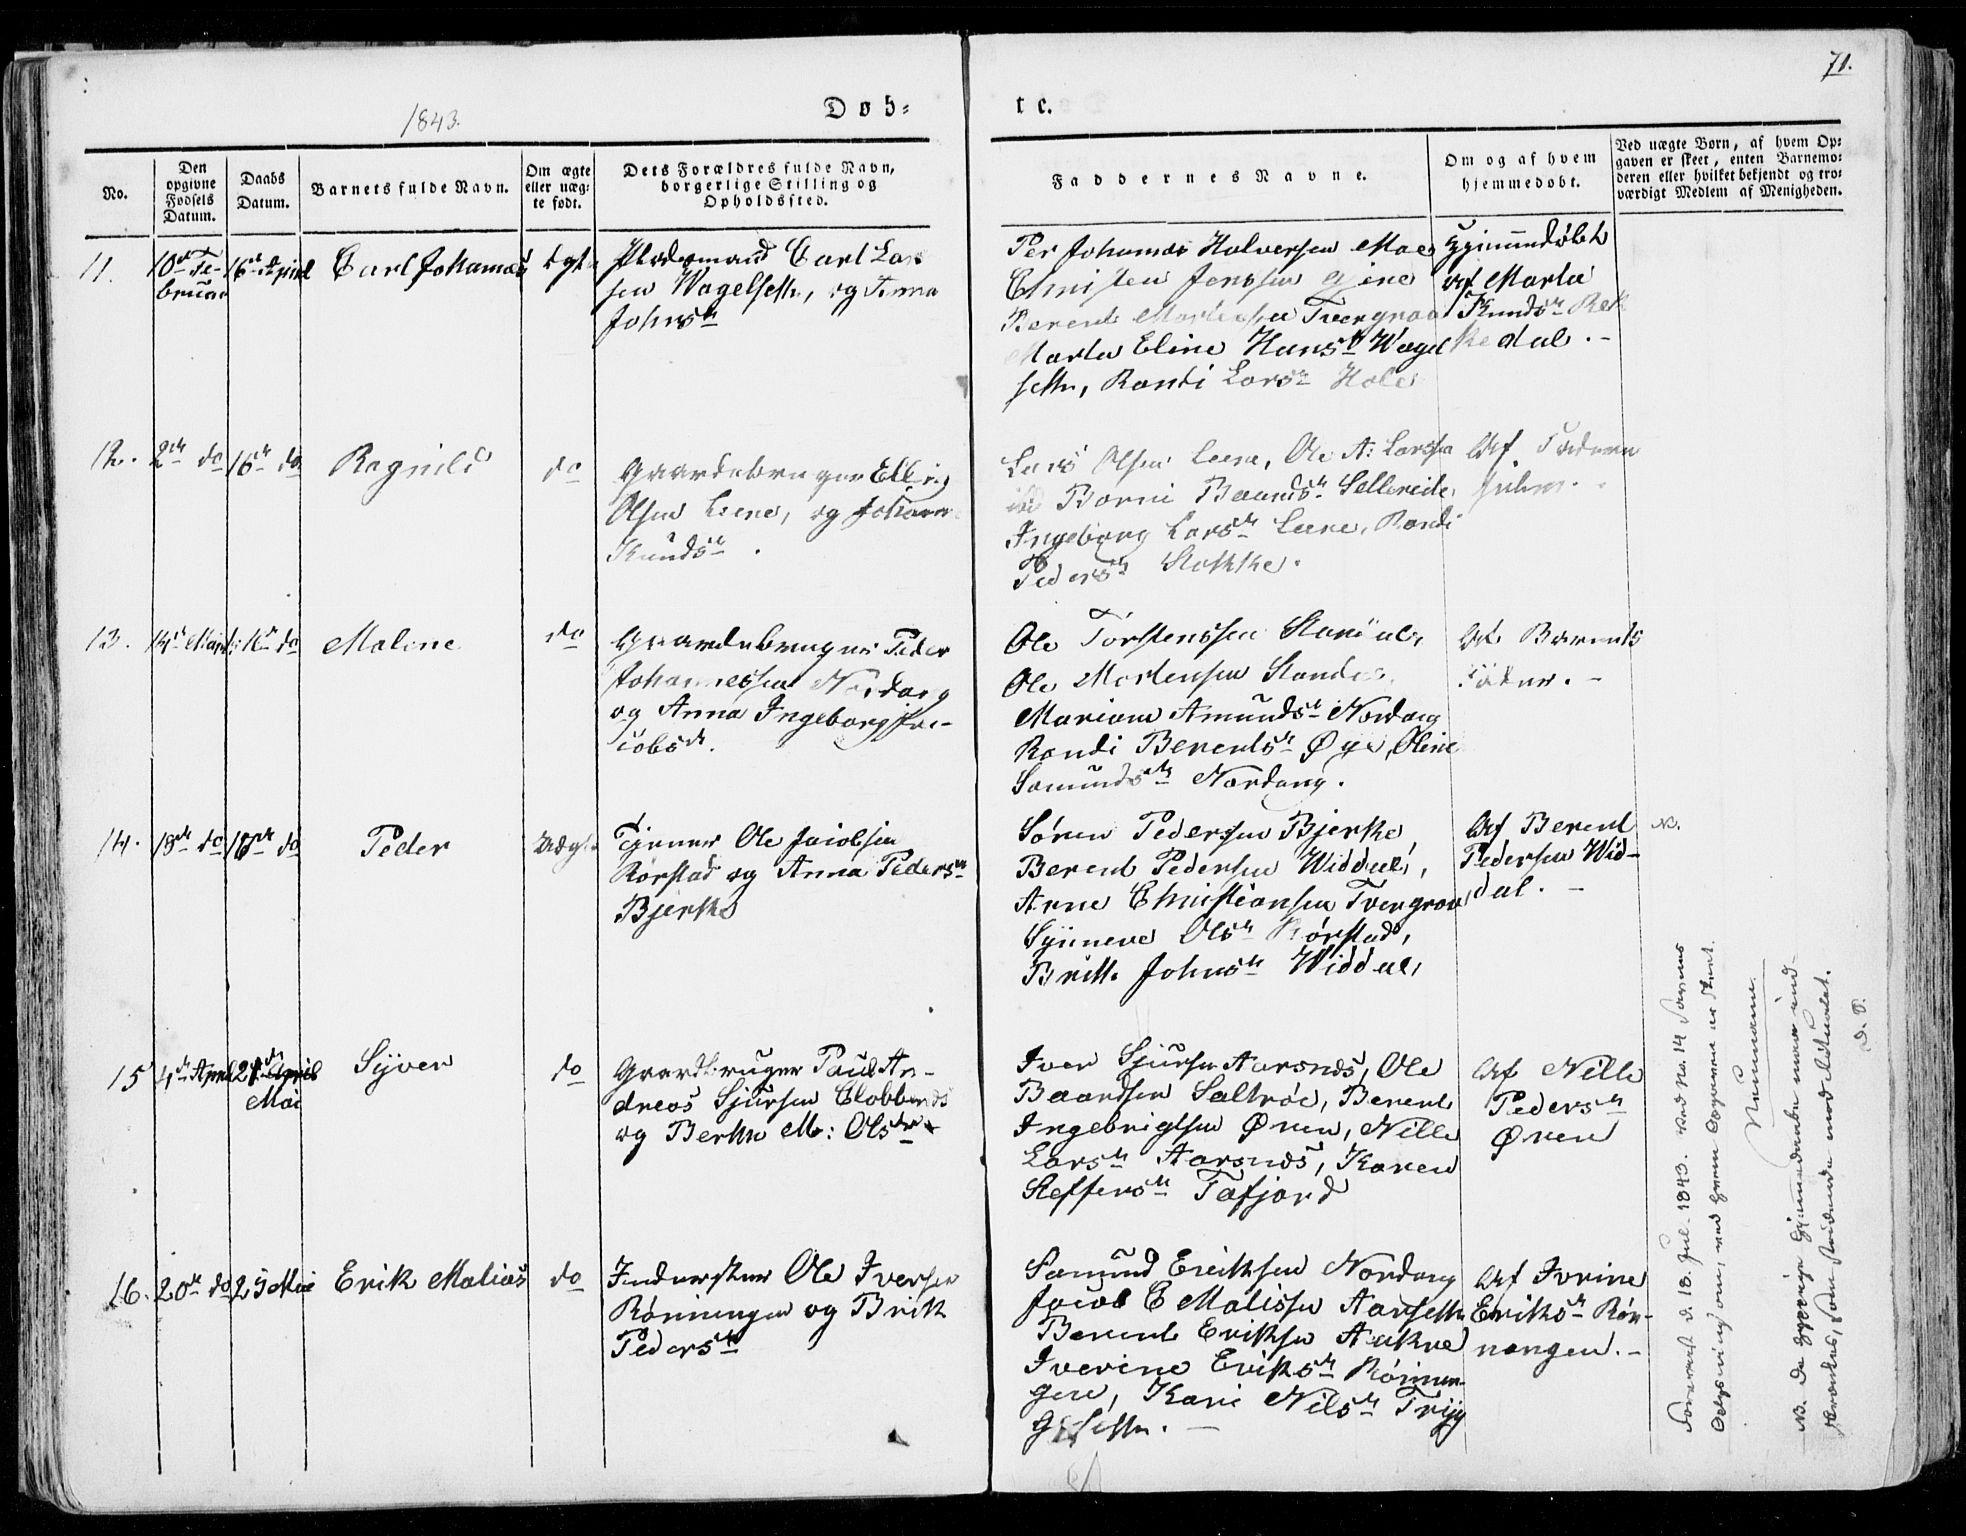 71.
1843.
Døb=
te.
No.
Den opgivne Fødsels Datum.
Daabs Datum.
Barnets fulde Navn.
Om ægte eller uæg= te født.
Dets Forældres fulde Navn, borgerlige Stilling og Opholdssted.
Faddernes Navne.
Om og af hvem hjemmedøbt.
Ved uægte Børn, af hvem Op= gaven er skeet, enten Barnemo= deren eller hvilket bekjendt og tro= værdigt Medlem af Menigheden.
11.
10de Fe-
bruar
16de April
Carl Johannes
Ægte
Pladsmand Carl Lar
sen Wagelsetn, og Anna
Johnsdr
Per Johannes Halversen Moe
Christen Jenssen
Berent Martinsen Tvergrov
Marta Eline Hansdr Wagel
setn, Randi Larsdr Hole
Hjemmedøbt
af Marta
Knudsdr Rek
kedal. -
12.
2de do
16de do
Ragnild
do
Gaardebruger Elling
Olsen Leene, og Johanne
Knudsdr.
Lars Olsen Leene, Ole A: Larssen
ibd Barni Baardsdr Sellereite
Ingeborg Larsdr Leene, Randi
Pedersdr Stokke.
Af Faderen
selv.
13.
14de Marts
16de do
Malene
do
Gaardebruger Peder
Johannessen Nordang
og Anna Ingeborg Ja-
cobsdr.
Ole Torstenssen
Ole Mortensen Standal
Mariane Amundsdr Nordang
Randi Berentsdr Øye, Oline
Samundsdr Nordang.
Af Barnets
Fader. -
14.
18de do
16de do
Peder
Uægte
Tjener Ole Jacobsen
Rørstad og Anna Pedersdr
Bjerke
Søren Pedersen Bjerke
Berent Pedersen Widdal,
Arne Christiansen Tvergrov
Synneve Olsdr Rørstad,
Britte Johnsdr Widdal,
Af Berent
Pedersen Wid-
dal. -
NB.
15
4de April
21de April
Mai
Syver
do
Gaardbruger Paul An-
dreas Sjursen Clobbends
og Berthe M: Olsdr
Iver Sjursen Aarsnes, Ole
Baardsen Saltrøe, Berent
Ingebrigtsen Øren, Nille
Larsdr Aarsnes, Karen
Steffensdr Tafjord
Af Nille
Pedersdr
Øren
16.
20de do
25 Mai
Erik Malias
do
Inderster Ole Iversen
Rønningen og Brit
Pedersdr
Samund Eriksen Nordang
Jacob E Malissen Aarsetn
Berent Eriksen Aakre
Iverine Eriksdr Rønnin-
gen, Kari Nilsdr Tryg
gesetn. -
Af Ivrine
Eriksdr Røn-
nengen. -
d. 18. Jul. 1843. Ved No. 14 savnes
Oplysning om, ved hvem Opgaven er skeet.
Neumann.
NB. De øvrige Hjemmedøbte maae ind-
føres, som stridende mod Ritualet.
D. S.